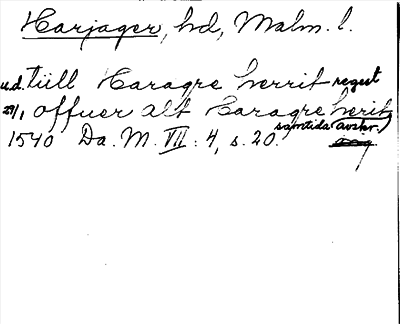 Harjager, hd, Malm. l.
u.d. tüll Haragre herrit regest
29/1 offuer alt Haragre herit
1540 Da. M. VII: 4, s. 20. samtida avskr.)